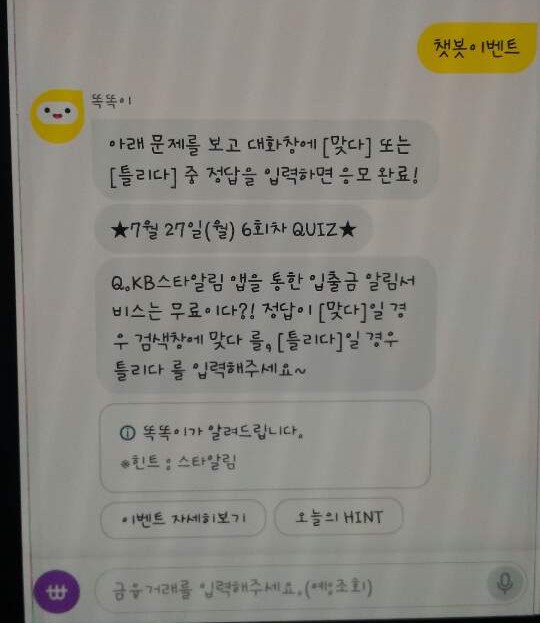 챗봇이벤트
똑똑이
아래 문제를 보고 대화창에 [맞다] 또는
[틀리다] 중 정답을 입력하면 응모 완료!
★7월 27일(월) 6회차 QUIZ★
Q.KB스타알림 앱을 통한 입출금 알림서
비스는 무료이다?! 정답이 [맞다]일 경
우 검색창에 맞다 를, [틀리다]일 경우
틀리다 를 입력해주세요~
똑똑이가 알려드립니다.
※힌트 : 스타알림
이벤트 자세히보기
오늘의 HINT
금융거래를 입력해주세요.(예:조회)